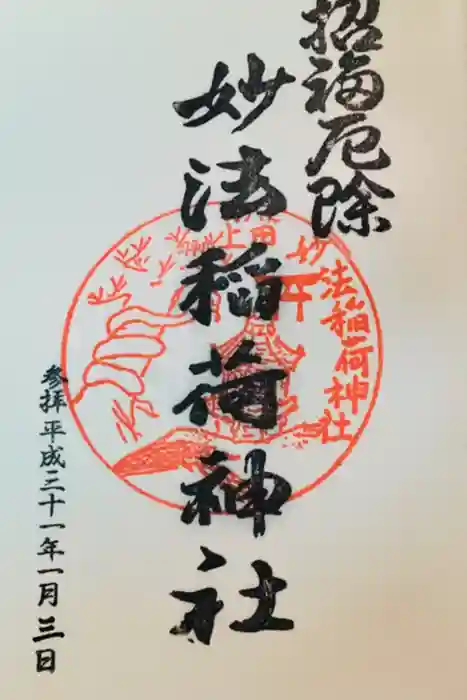 招福厄除
妙法稲荷神社
妙法稲荷神社
参拝平成三十一年一月三日